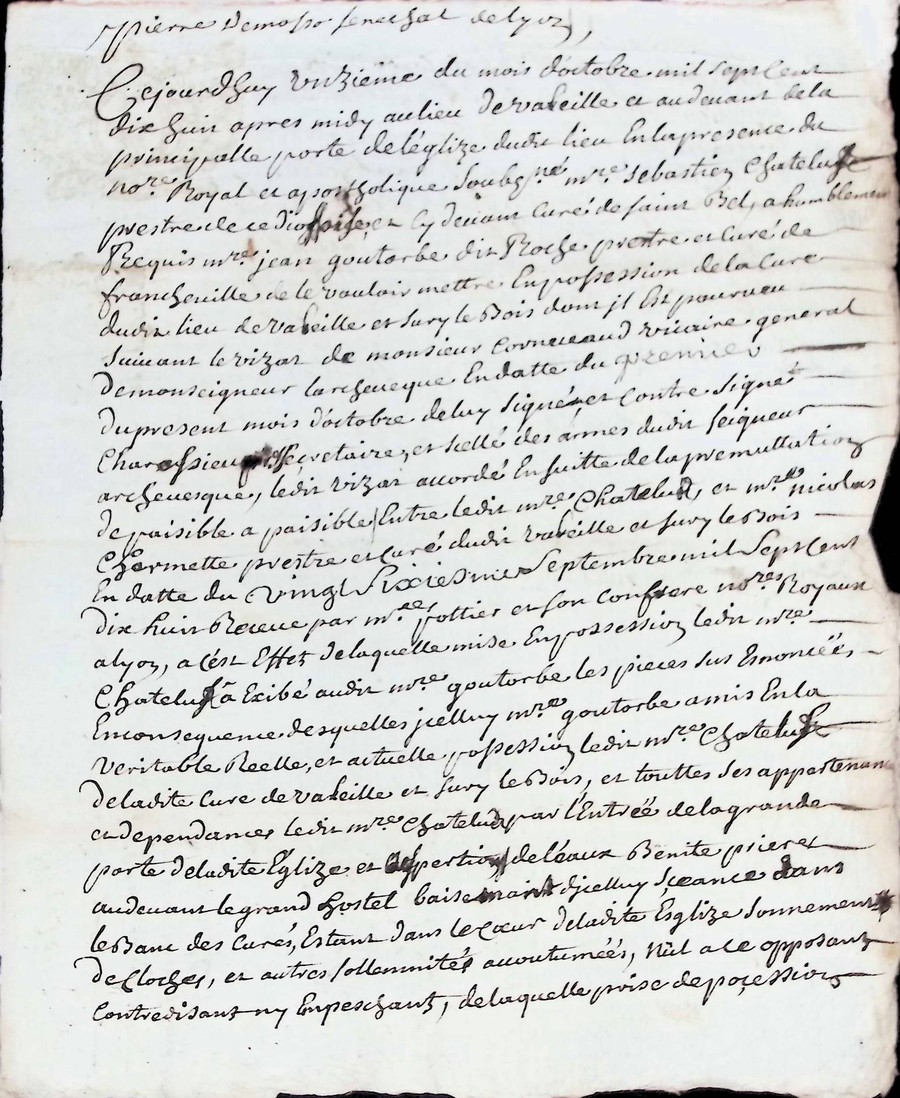 pierre demosso senechal de lyon,
Cejourdhuy unzieme du mois doctobre mil sept cent
dix huit apres midy au lieu de valeille et audevant de la
principalle porte de léglize dudit lieu En la presence du
no.re Royal et apostholique soubs.né m.re sebastien Chatelus
prestre de ce diossise, et Cy devant Curé de saint Bel, a humblement
Requis m.re jean goutorbe dit Roche prestre et Curé de
francheville de le vouloir mettre En possession de la Cure
dudit lieu de valeille et sury le Bois dont jl Est pourveu
suivant le vizat de monsieur Cornuaud vicaire general
de monseigneur larcheveque En datte du premier
du present mois doctobre de luy signé, et Contre signé
secretaire, et sellé des armes dudit seigneur
archevesque, ledit vizat accordé En suitte de la premuttation
de paisible a paisible Entre ledit m.re Chatelus, et m.re nicolas
Chermette prestre et Curé dudit valeille et sury le Bois
En datte du vingt sixiesme Septembre mil Sept Cent
dix huit Receue par m.res pottier et son Confrere no.res Royaux
a lyon, a cést Effet de laquelle mise En possession ledit m.re
Chatelus a Exibé audit m.re goutorbe les pieces sus Enoncéés,
En consequence desquelles jcelluy m.re goutorbe a mis En la
veritable Reelle, et actuelle possession ledit m.re Chatelus
de ladite Cure de valeille et sury le Bois, et touttes ses appartenan
et dependances ledit m.re Chatelus par l'Entréé de la grande
porte de ladite Eglize, et aspertion de léaux Benite prieres
audevant le grand hostel baisemant djcelluy sçeance dans
le Banc des Curés, Estant dans le Cœur de ladite Esglize sonnement
de Cloches, et autres sollemnités accoutuméés, nul a ce opposant
Contredisant ny Enpeschant, de laquelle prise de poçession